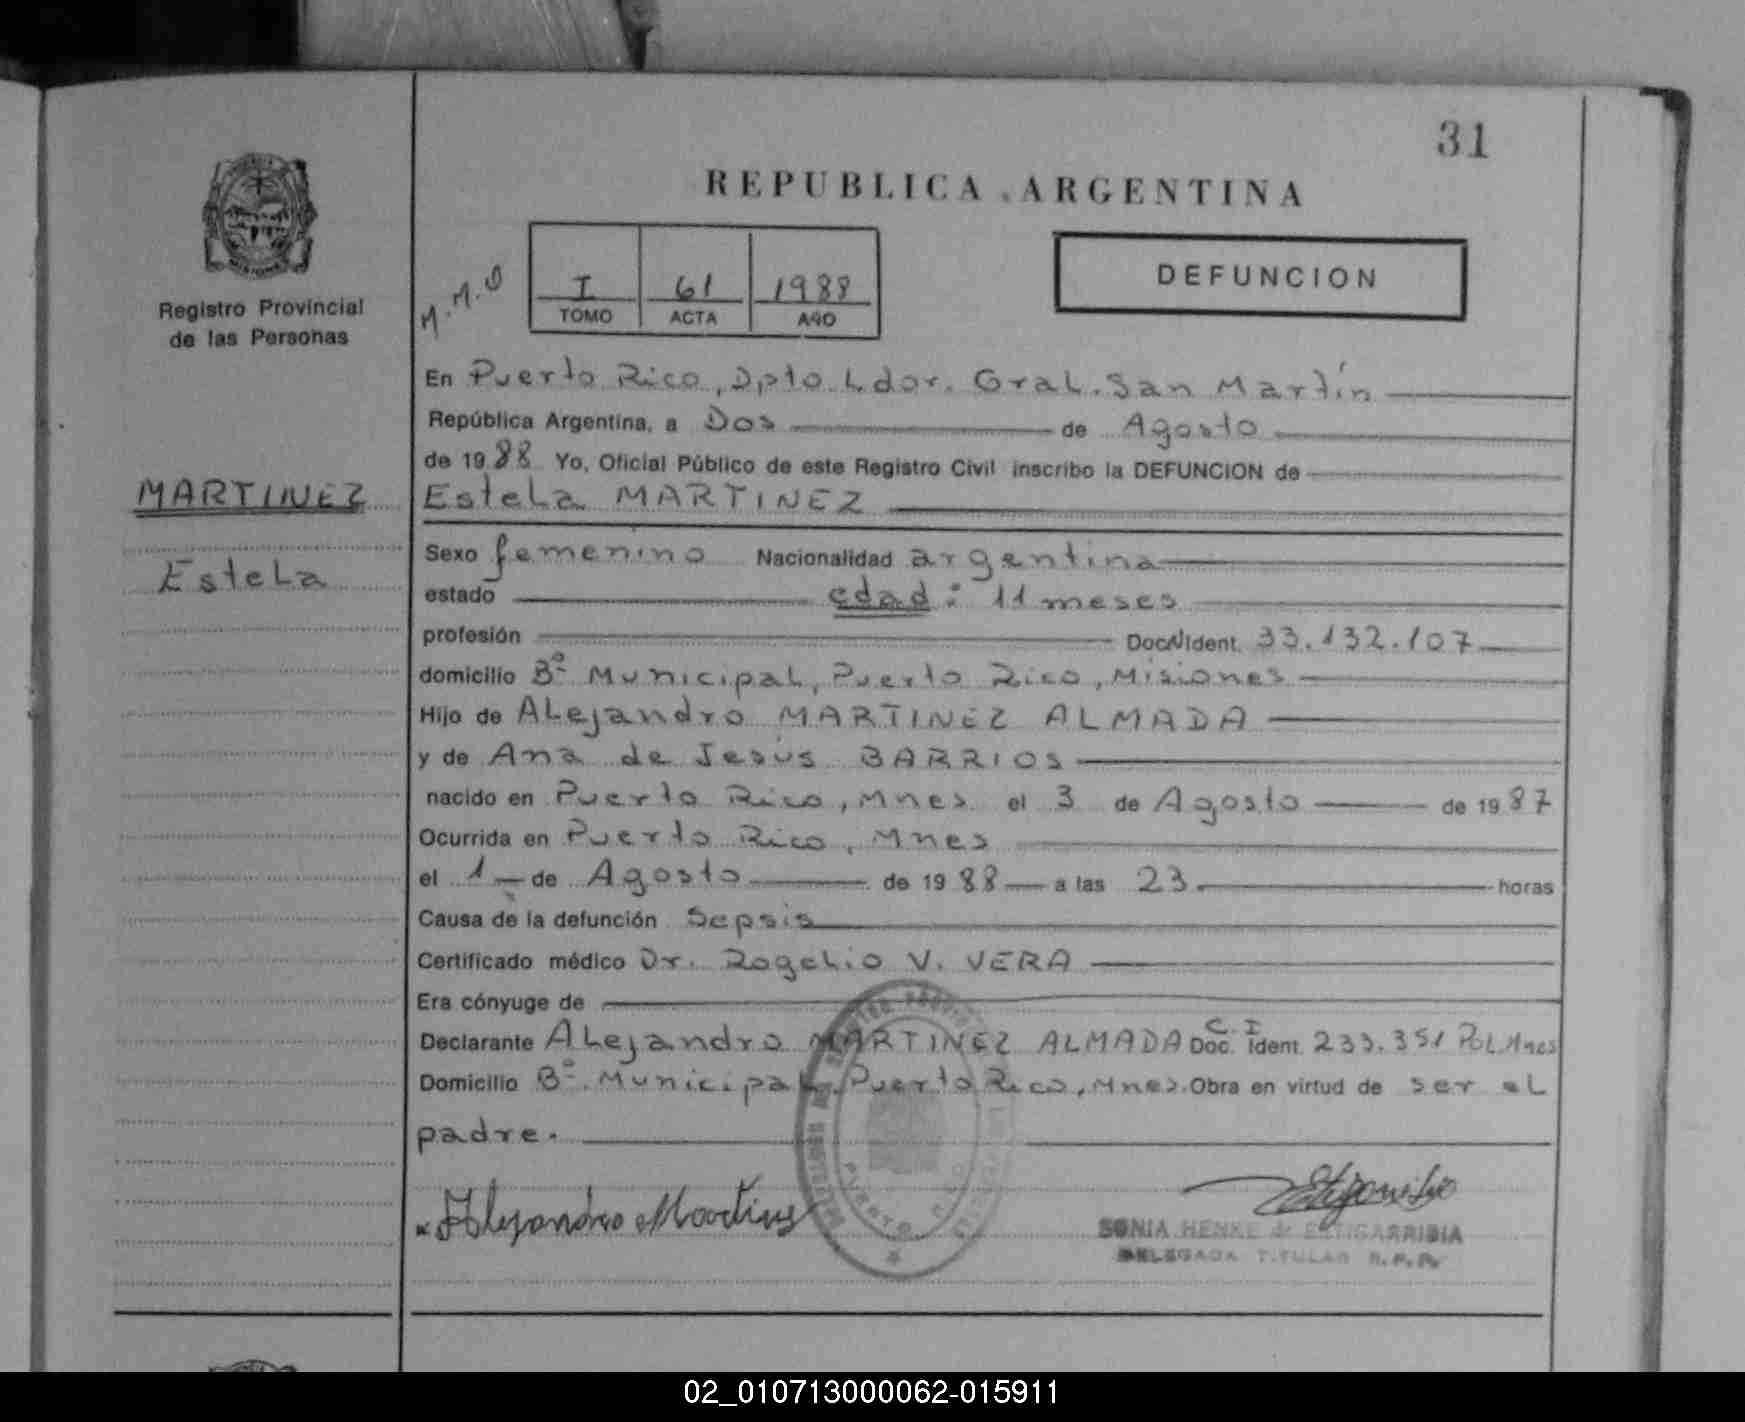 31
REPUBLICA ARGENTINA
Registro Provincial
de las Personas
M.M.O
I 61 1988
TOMO ACTA AÑO
DEFUNCION
En Puerto Rico, Dpto. Ldor. Gral. San Martín
República Argentina, a Dos de Agosto
de 1988 Yo, Oficial Público de este Registro Civil inscribo la DEFUNCION de
MARTINEZ
Estela MARTINEZ
Estela
Sexo femenino Nacionalidad argentina
estado edad: 11 meses
profesión Doc.N.Ident. 33.132.107
domicilio Bº Municipal, Puerto Rico, Misiones
Hijo de Alejandro MARTINEZ ALMADA
y de Ana de Jesús BARRIOS
nacido en Puerto Rico, Mnes el 3 de Agosto de 1987
Ocurrida en Puerto Rico, Mnes
el 1 de Agosto de 1988 a las 23 horas
Causa de la defunción Sepsis
Certificado médico Dr. Rogelio V. VERA
Era cónyuge de
Declarante Alejandro MARTINEZ ALMADA C.I Doc. Ident. 233.351 Pol. Mnes
Domicilio Bº. Municipal, Puerto Rico, Mnes. Obra en virtud de ser el
padre.
Alejandro Martinez
SONIA HENKE de ESTIGARRIBIA
DELEGADA TITULAR R.P.P.
PUERTO RICO
02_010713000062-015911